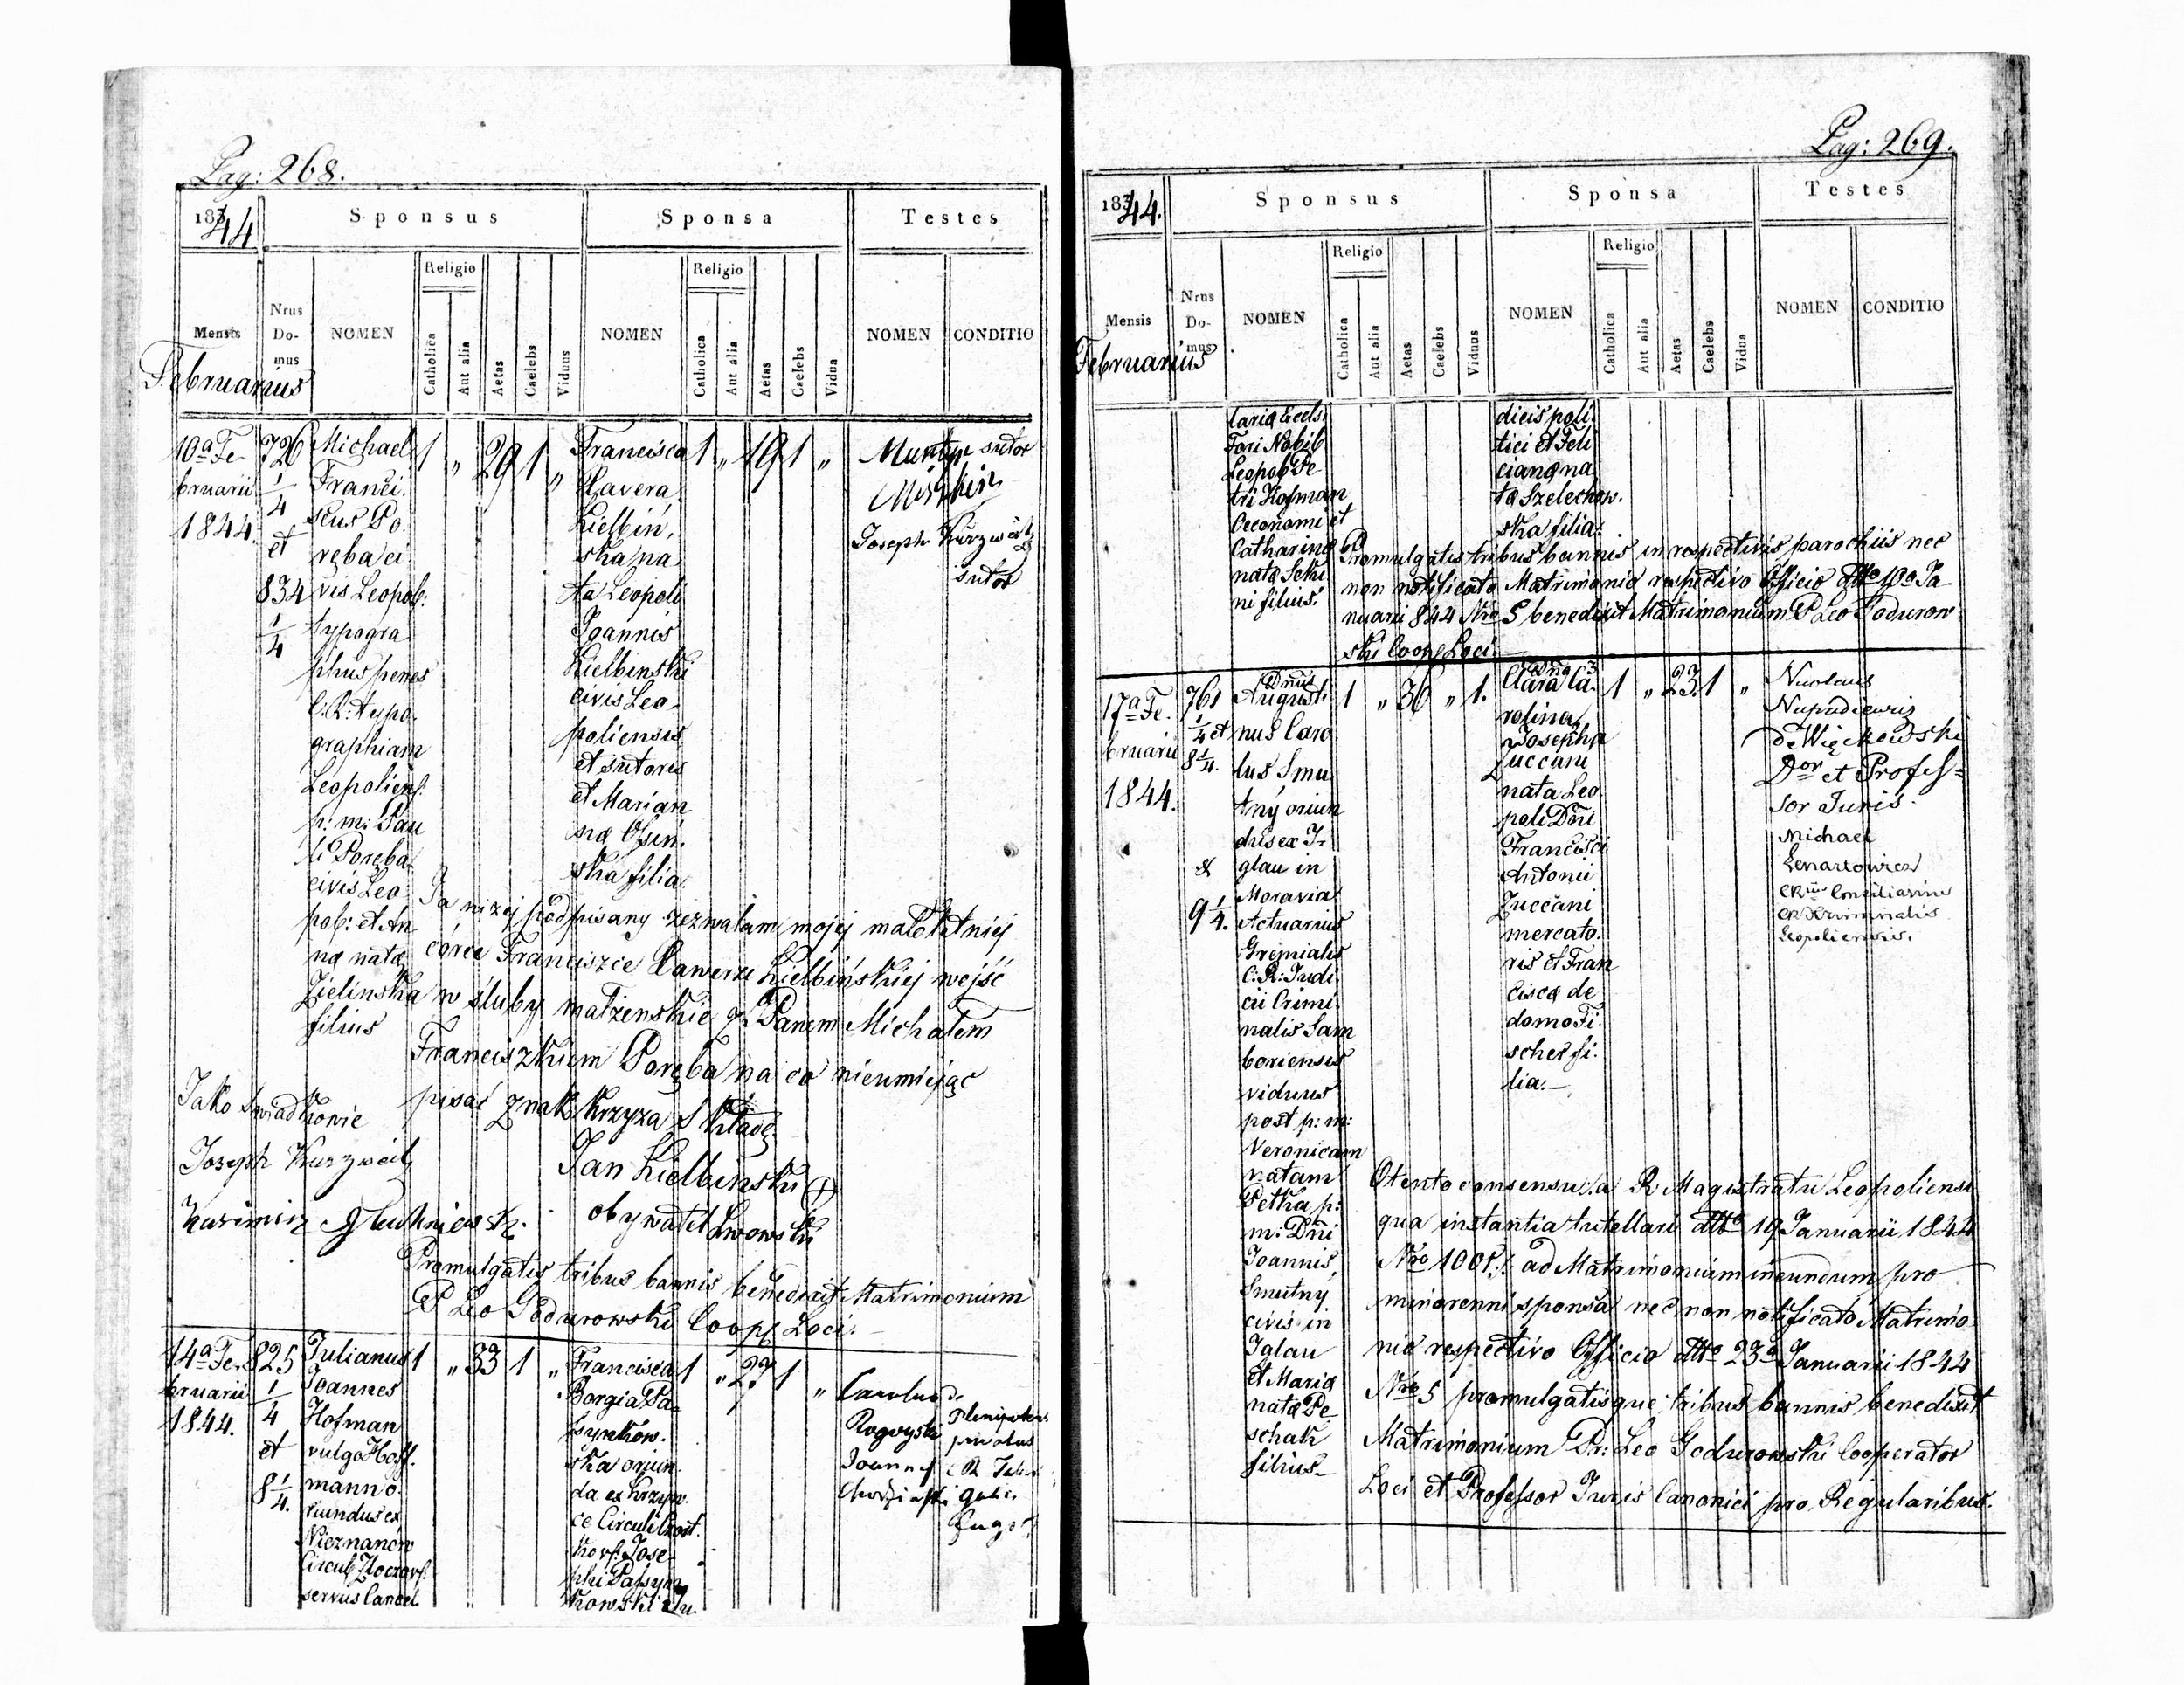 Pag: 268.
1844
Sponsus
Sponsa
Testes
Mensis
Nrus Do-
mus
NOMEN
Religio
Catholica
Aut alia
Aetas
Caelebs
Viduus
NOMEN
Religio
Catholica
Aut alia
Aetas
Caelebs
Vidua
NOMEN
CONDITIO
Februarius
10a Fe-
bruarii
1844.
726
1/4
et
834
1/4
Michael
Franci.
scus Po.
ręba ci
vis Leopol:
typogra
phus penes
C. R: typo.
graphiam
Leopoliens:
p: m: Pau
li Poręba
civis Leo
pol: et An
na nata
Zielinska
filius
1 „ 29 1 „
Francisca
Xavera
Kielbiń,
ska na
ta Leopoli
Joannis
Kielbinski
civis Leo-
poliensis
et sutoris
et Marian
na
ska filia.
1 „ 19 1 „
sutor
Joseph Kurzweil
sutor
Ja niżej podpisany zezwalam mojej małoletniej
córce Franciszce Xawerze Kielbińskiej wejść
w śluby małżenskie z Panem Michałem
Franciszkiem Poręba na co nieumiejąc
pisać znak krzyża S kładę.
Jan Kielbinski
obywatel Lwowski
Jako Swiadkowie
Joseph Kurzweil
Kazimirz
Promulgatis tribus bannis benedixit Matrimonium
P Leo Godurowski Coop Loci.
14a Fe.
bruarii
1844.
825
1/4
et
8 1/4.
Julianus
Joannes
Hofman
vulgo Hoff.
mann o.
riundus ex
Nieznanów
Circuli Zloczov:
servus Cancel
1 „ 33 1 „
Francisca
Borgia Pa-
szynkow.
ska oriun.
da ex Krzyw.
ce Circuli Czort.
kov: Jose-
phi Paszyn
kowski Ju.
1 „ 27 1 „
Carolus de
Rogoyski
Plenipotens
privatus
Joannes
Pag: 269.
1844.
Sponsus
Sponsa
Testes
Mensis
Nrus
Do-
mus
NOMEN
Religio
Catholica
Aut alia
Aetas
Caelebs
Viduus
NOMEN
Religio
Catholica
Aut alia
Aetas
Caelebs
Vidua
NOMEN
CONDITIO
Februarius
laria Excels.
Fori Nobil
Leopol Pe-
tri Hofman
Oeconomi et
Catharina
nata Seki
ni filius.
dicis poli
tici et Feli
ciana na
ta Szelechow.
ska filia.
Promulgatis tribus bannis in respectivis parochiis nec
non notificato Matrimonio respectivo Officio dtto 10a Ja-
nuarii 844 Nro 5 benedixit Matrimonium P Leo Godurow
ski Coop Loci.
17a Fe.
bruarii
1844.
761
1/4 et
8 1/4.
&
9 1/4.
Dnus
Augusti.
nus Caro
lus Smu
tný oriun
dus ex I-
glau in
Moravia
Actuarius
Gremialis
C. R: Judi
cii Crimi
nalis Sam
boriensis
viduus
post p: m:
Veronicam
natam
Petka p:
m: Dni
Joannis
Smutný
civis in
Iglau
et Maria
nata Pe-
schak
filius
1 „ 36 „ 1.
Dna
Clara Ca.
rolina
Josepha
Zuccani
nata Leo
poli Dni
Francisci
Antonii
Zuccani
mercato.
ris et Fran
cisca de
domo Fi.
scher fi.
lia.
1 „ 23 1 „
de Więckowski
Dor et Profes=
sor Juris.
Michael
Lenartowicz
Consiliarius
Criminalis
Leopoliensis.
Otento consensu a R Magistratu Leopoliensi
qua instantia tutellari dtto 19 Januarii 1844
Nro 1005 ad Matrimonium ineundum pro
minorenni sponsa nec non notificato Matrimo
nio respectivo Officio dtto 23a Januarii 1844
Nro 5 promulgatisque tribus bannis benedixit
Matrimonium Pr: Leo Godurowski Cooperator
Loci et Professor Juris Canonici pro Regularibus.